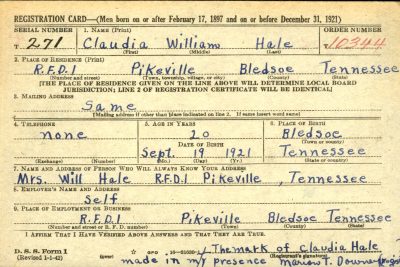 REGISTRATION CARD—(Men born on or after February 17, 1897 and on or before December 31, 1921)
SERIAL NUMBER 1. NAME (Print) ORDER NUMBER
T 271 Claudia William Hale 10344
(First) (Middle) (Last)
2. PLACE OF RESIDENCE (Print)
R.F.D.1 Pikeville Bledsoe Tennessee
(Number and street) (Town, township, village, or city) (County) (State)
[THE PLACE OF RESIDENCE GIVEN ON THE LINE ABOVE WILL DETERMINE LOCAL BOARD
JURISDICTION; LINE 2 OF REGISTRATION CERTIFICATE WILL BE IDENTICAL]
3. MAILING ADDRESS
Same
[Mailing address if other than place indicated on line 2. If same insert word same]
4. TELEPHONE 5. AGE IN YEARS 6. PLACE OF BIRTH
none 20 Bledsoe
DATE OF BIRTH (Town or county)
Sept. 19 1921 Tennessee
(Exchange) (Number) (Mo.) (Day) (Yr.) (State or country)
7. NAME AND ADDRESS OF PERSON WHO WILL ALWAYS KNOW YOUR ADDRESS
Mrs. Will Hale R.F.D.1 Pikeville, Tennessee
8. EMPLOYER'S NAME AND ADDRESS
Self
9. PLACE OF EMPLOYMENT OR BUSINESS
R.F.D.1 Pikeville Bledsoe Tennessee
(Number and street or R. F. D. number) (Town) (County) (State)
I AFFIRM THAT I HAVE VERIFIED ABOVE ANSWERS AND THAT THEY ARE TRUE.
D. S. S. Form 1 The mark of Claudia Hale
(Revised 1-1-42) (Registrant's signature)
made in my presence Marion T.